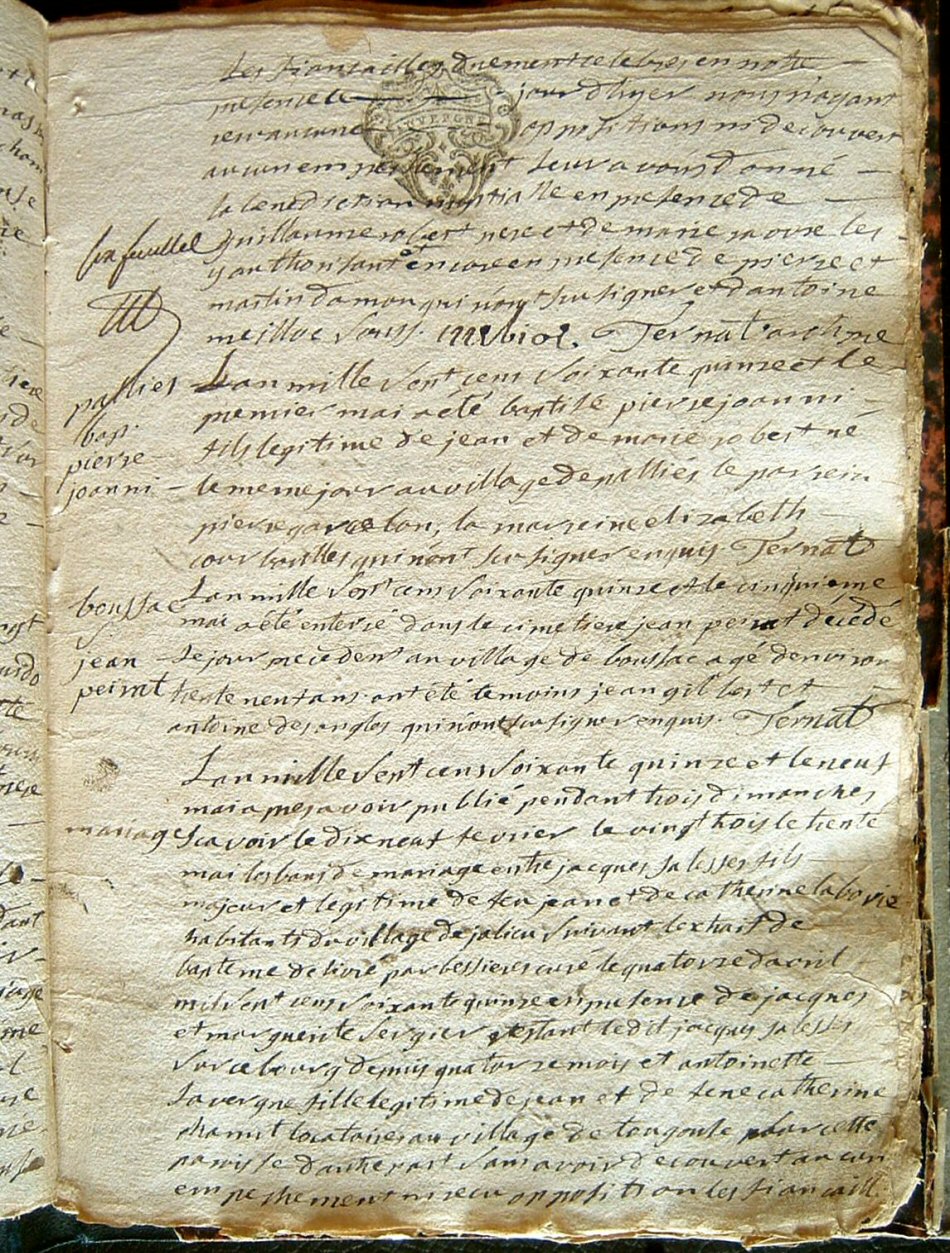 Les fiancailles duement celebres en notre
presence le jour d'hyer nous n'ayant
recu aucune oppositions ni decouvert
aucun empeschement leur avons donné
la benediction nuptialle en presence de
six feuillet
guillaume robert pere et de marie
yauthorisant encore en presence de pierre et
martin damon qui n'ont su signer et d'antoine
meillac souss. Ternat
AUVERGNE
pallies
bap.
pierre
joanni
Lan mille sept cens soixante quinze et le
premier mai a été baptisé pierre joanni
fils legitime de jean et de marie robert né
le meme jour au village de palliés le parrein
pierre la marreine elizabeth
qui n'ont su signer enquis Ternat
boussac
jean
peirat
Lan mille sept cens soixante quinze et le cinquieme
mai a été enterré dans le cimetiere jean peirat décédé
le jour precedent au village de boussac agé denviron
trente neuf ans ont été temoins jean gilbert et
antoine desangles qui n'ont su signer enquis. Ternat
mariage
Lan mille sept cens soixante quinze et le neuf
mai apres avoir publié pendant trois dimanches
scavoir le dixneuf fevrier le vingt trois le trente
mai les bans de mariage entre jacques salesses fils
majeur et legitime de feu jean et de catherine
habitants du village de jalieu suivant lextrait de
bapteme delivré par bessieres curé le quatorze davril
mil sept cens soixante quinze en presence de jacques
et marguerite sergier restant ledit jacques salesses
sur ce bourg depuis quatorze mois et antoinette
lavergne fille legitime de jean et de feue catherine
locataires au village de tougouse pour cette
paroisse dautre part sans avoir decouvert aucun
empeschement ni recu opposition les fiancaill.